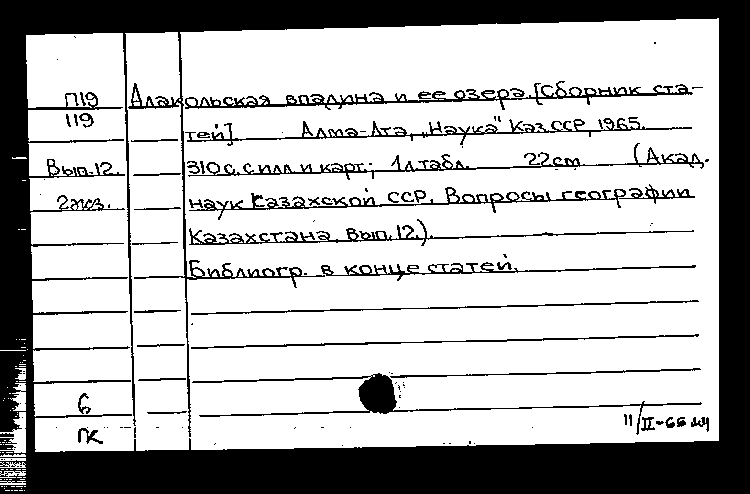 П19 Алакольская впадина и ее озера. [Сборник ста-
119
тей]. Алма-Ата, „Наука" Каз.ССР, 1965.
Вып.12. 310 с. с илл. и карт.; 1 л. табл. 22 cm (Акад.
2экз. наук Казахской ССР. Вопросы географии
Казахстана. Вып. 12.).
Библиогр. в конце статей.
6
ПК
11/II-66